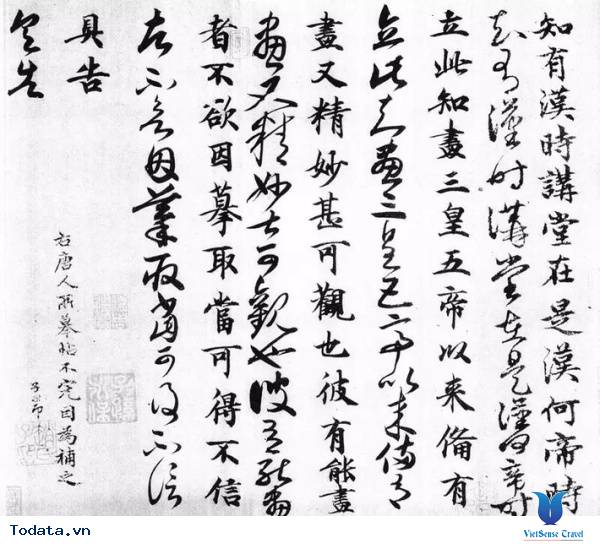 知有漢時講堂在是漢何帝時
知有漢時講堂在是漢何帝時
立此知畫三皇五帝以来俻有
立此知畫三皇五帝以来俻有
畫又精妙甚可觀也彼有能畫
畫又精妙甚可觀也彼有能畫
者不欲因摹取當可得不信
者不欲因摹取當可得不信
具告
具告
右唐人所摹帖不完因為補之
子昂
Todata.vn
VietSense Travel